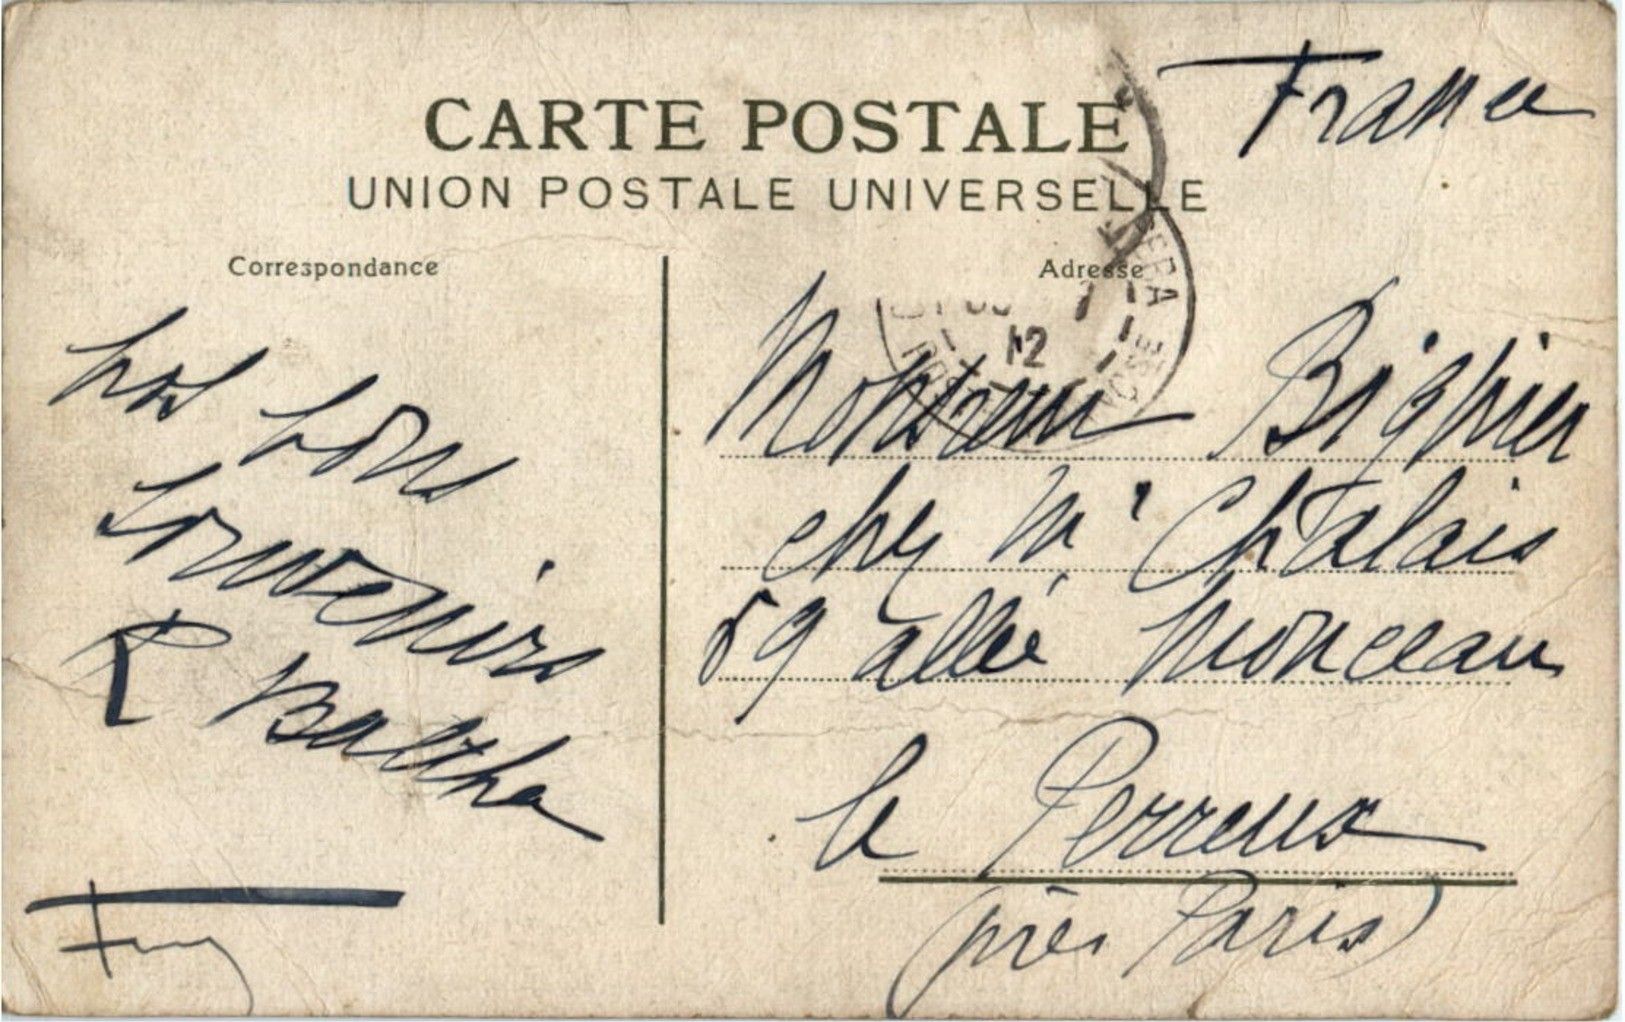 France
CARTE POSTALE
UNION POSTALE UNIVERSELLE
Correspondance
Adresse
bons
souvenirs
R Baltha
12
Monsieur Bignier
chez Mr Chalais
59 allée Monceau
le Perreux
(près Paris)